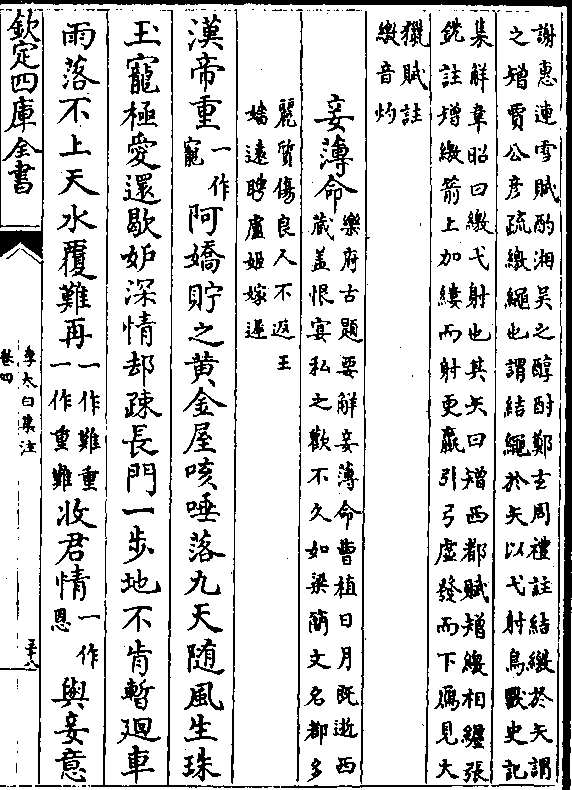 謝惠連雪賦酌湘吳之醇酎鄭玄周禮註結繳於矢謂
之矰賈公彥疏繳繩也謂結繩於矢以弋射鳥獸史記
集解韋昭曰繳弋射也其矢曰矰西都賦矰繳相纏張
銑註矰繳箭上加縷而射更羸引弓虛發而下鴈見大
獵賦註
繳音灼
妾薄命
樂府古題要解妾薄命曹植日月既逝西
藏蓋恨宴私之歡不久如梁簡文名都多
麗質傷良人不返王
嬙遠聘盧姬嫁遲
漢帝重一作寵阿嬌貯之黃金屋咳唾落九天隨風生珠
玉寵極愛還歇妒深情却疎長門一步地不肯暫廻車
雨落不上天水覆難再一作難重一作重難收君情一作恩與妾意
欽定四庫全書
李太白集注
卷四
三十八